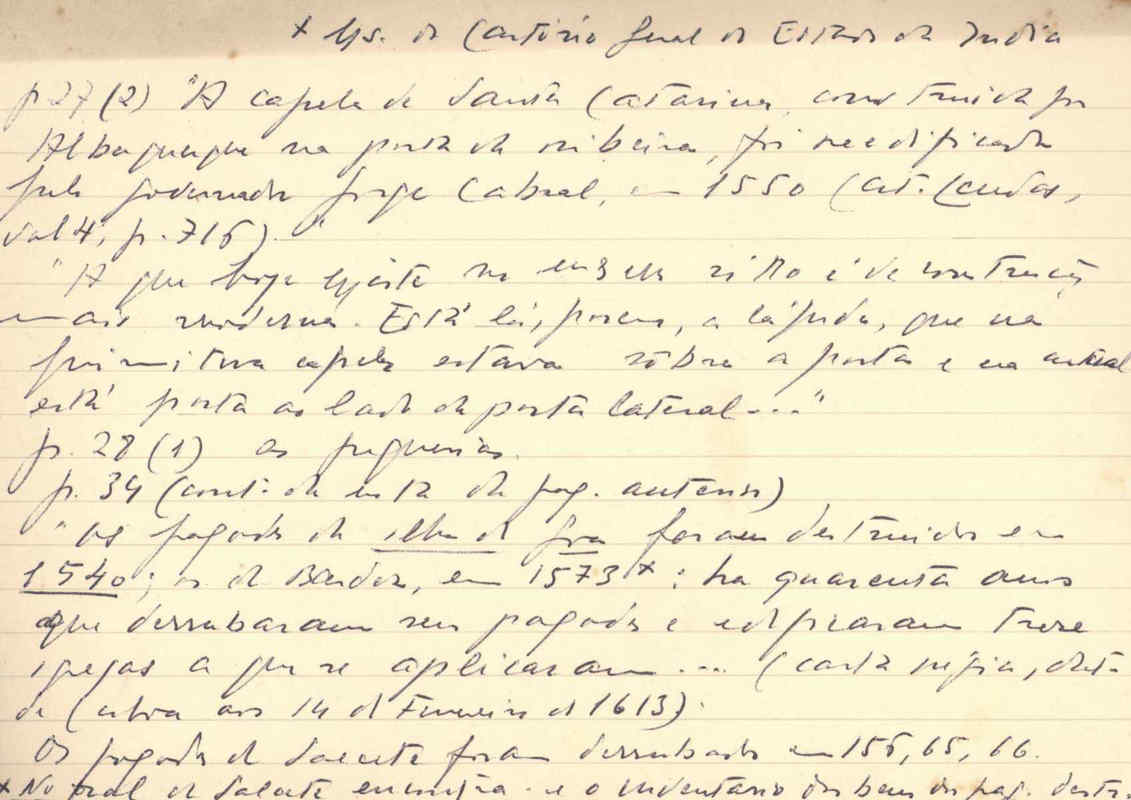 x Ms. do Cartório Geral do Estado da India
p. 27 (2) "A capela de Santa Catarina, construida por
Albuquerque na porta da ribeira, foi reedificada
pelo governador Jorge Cabral, em 1550 (Cast. Lendas,
vol 4, p. 716)."
"A que hoje existe no mesmo sitio é de construção
mais moderna. Está lá, porem, a lápide, que na
primitiva capela estava sôbre a porta e na actual
está posta ao lado da porta lateral..."
p. 28 (1) as freguesias.
p. 34 (cont. da nota da pag. anterior)
"Os pagodes da ilha de Goa foram destruidos em
1540; os de Bardez, em 1573 x : ha quarenta anos
que derrubaram seus pagodes e edificaram treze
igrejas a que se aplicaram ... (carta régia, dat.
de Lisboa aos 14 de Fevereiro de 1613).
Os pagodes de Salcete foram derrubados em 156, 65, 66.
x No foral de Salcete encontra-se o inventário dos bens dos pag. destr.